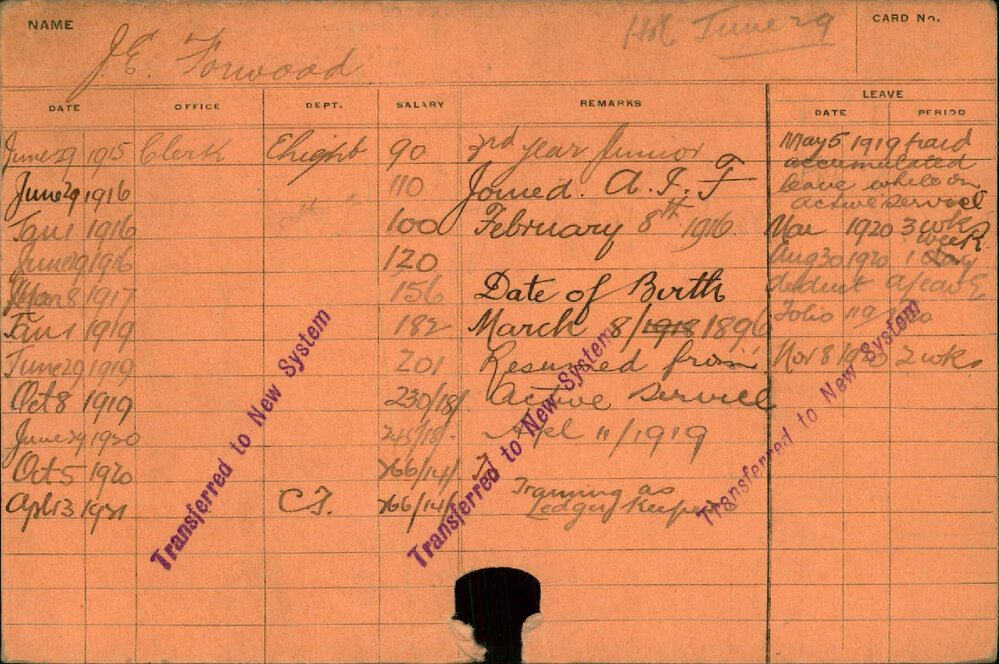 NAME J.E. Forwood June 29 CARD No.
DATE OFFICE DEPT. SALARY REMARKS LEAVE
DATE PERIOD
June 29 1915 Clerk 90 3rd year Junior May 5 1919 paid
accumulated
June 29 1916 110 Joined. A.I.F leave while on
active service
Jan 1 1916 100 February 8th 1916 Mar 1920 3 wks
June 29 1916 120 Aug 30 1920 1 week
day
Mar 8 1917 156 Date of Birth deduct a/c
Jan 1 1919 182 March 8/1918 1896 Folio 119
June 29 1919 201 Resumed from Nov 8 1920 2 wks
Oct 8 1919 230/18/ active service
June 29 1920 245/18/- April 11/1919
Oct 5 1920 266/14/
April 13 1921 C.I. 266/14/ Training as
Ledger Keeper
Transferred to New System
Transferred to New System
Transferred to New System